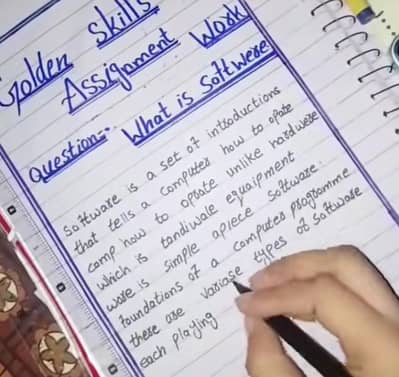 Golden Skills
Assignment Work
Question:- What is Softwere
Software is a set of introductions
that tells a computer how to opate
comp how to opoate unlike hardwere
which is tandiwale eguaipment
wore is simple apiece Software.
foundations of a computes progoomme
there are variase types of Saftwore
each playing